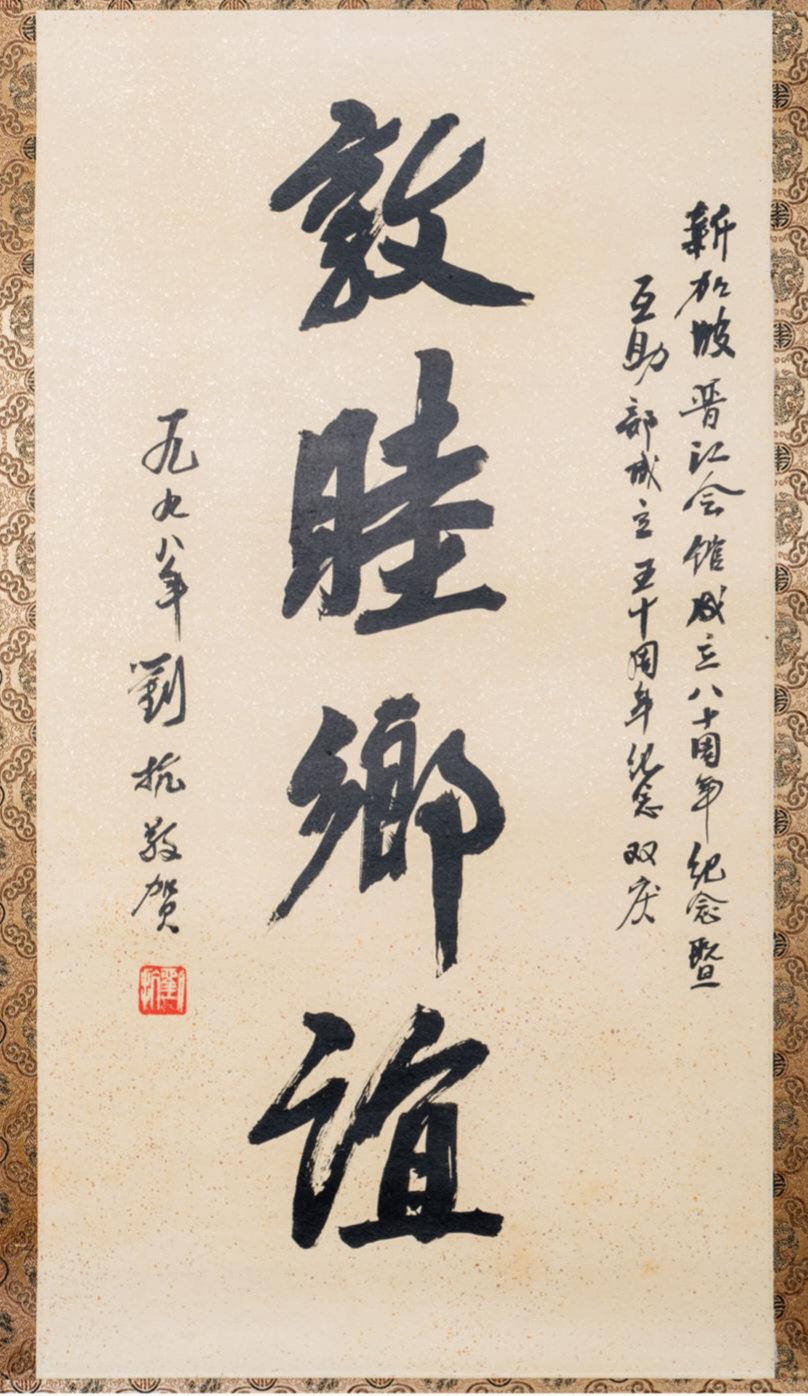 新加坡晋江会馆成立八十周年纪念暨
互助部成立五十周年纪念双庆
敦睦鄉誼
一九九八年劉抗敬贺
劉抗